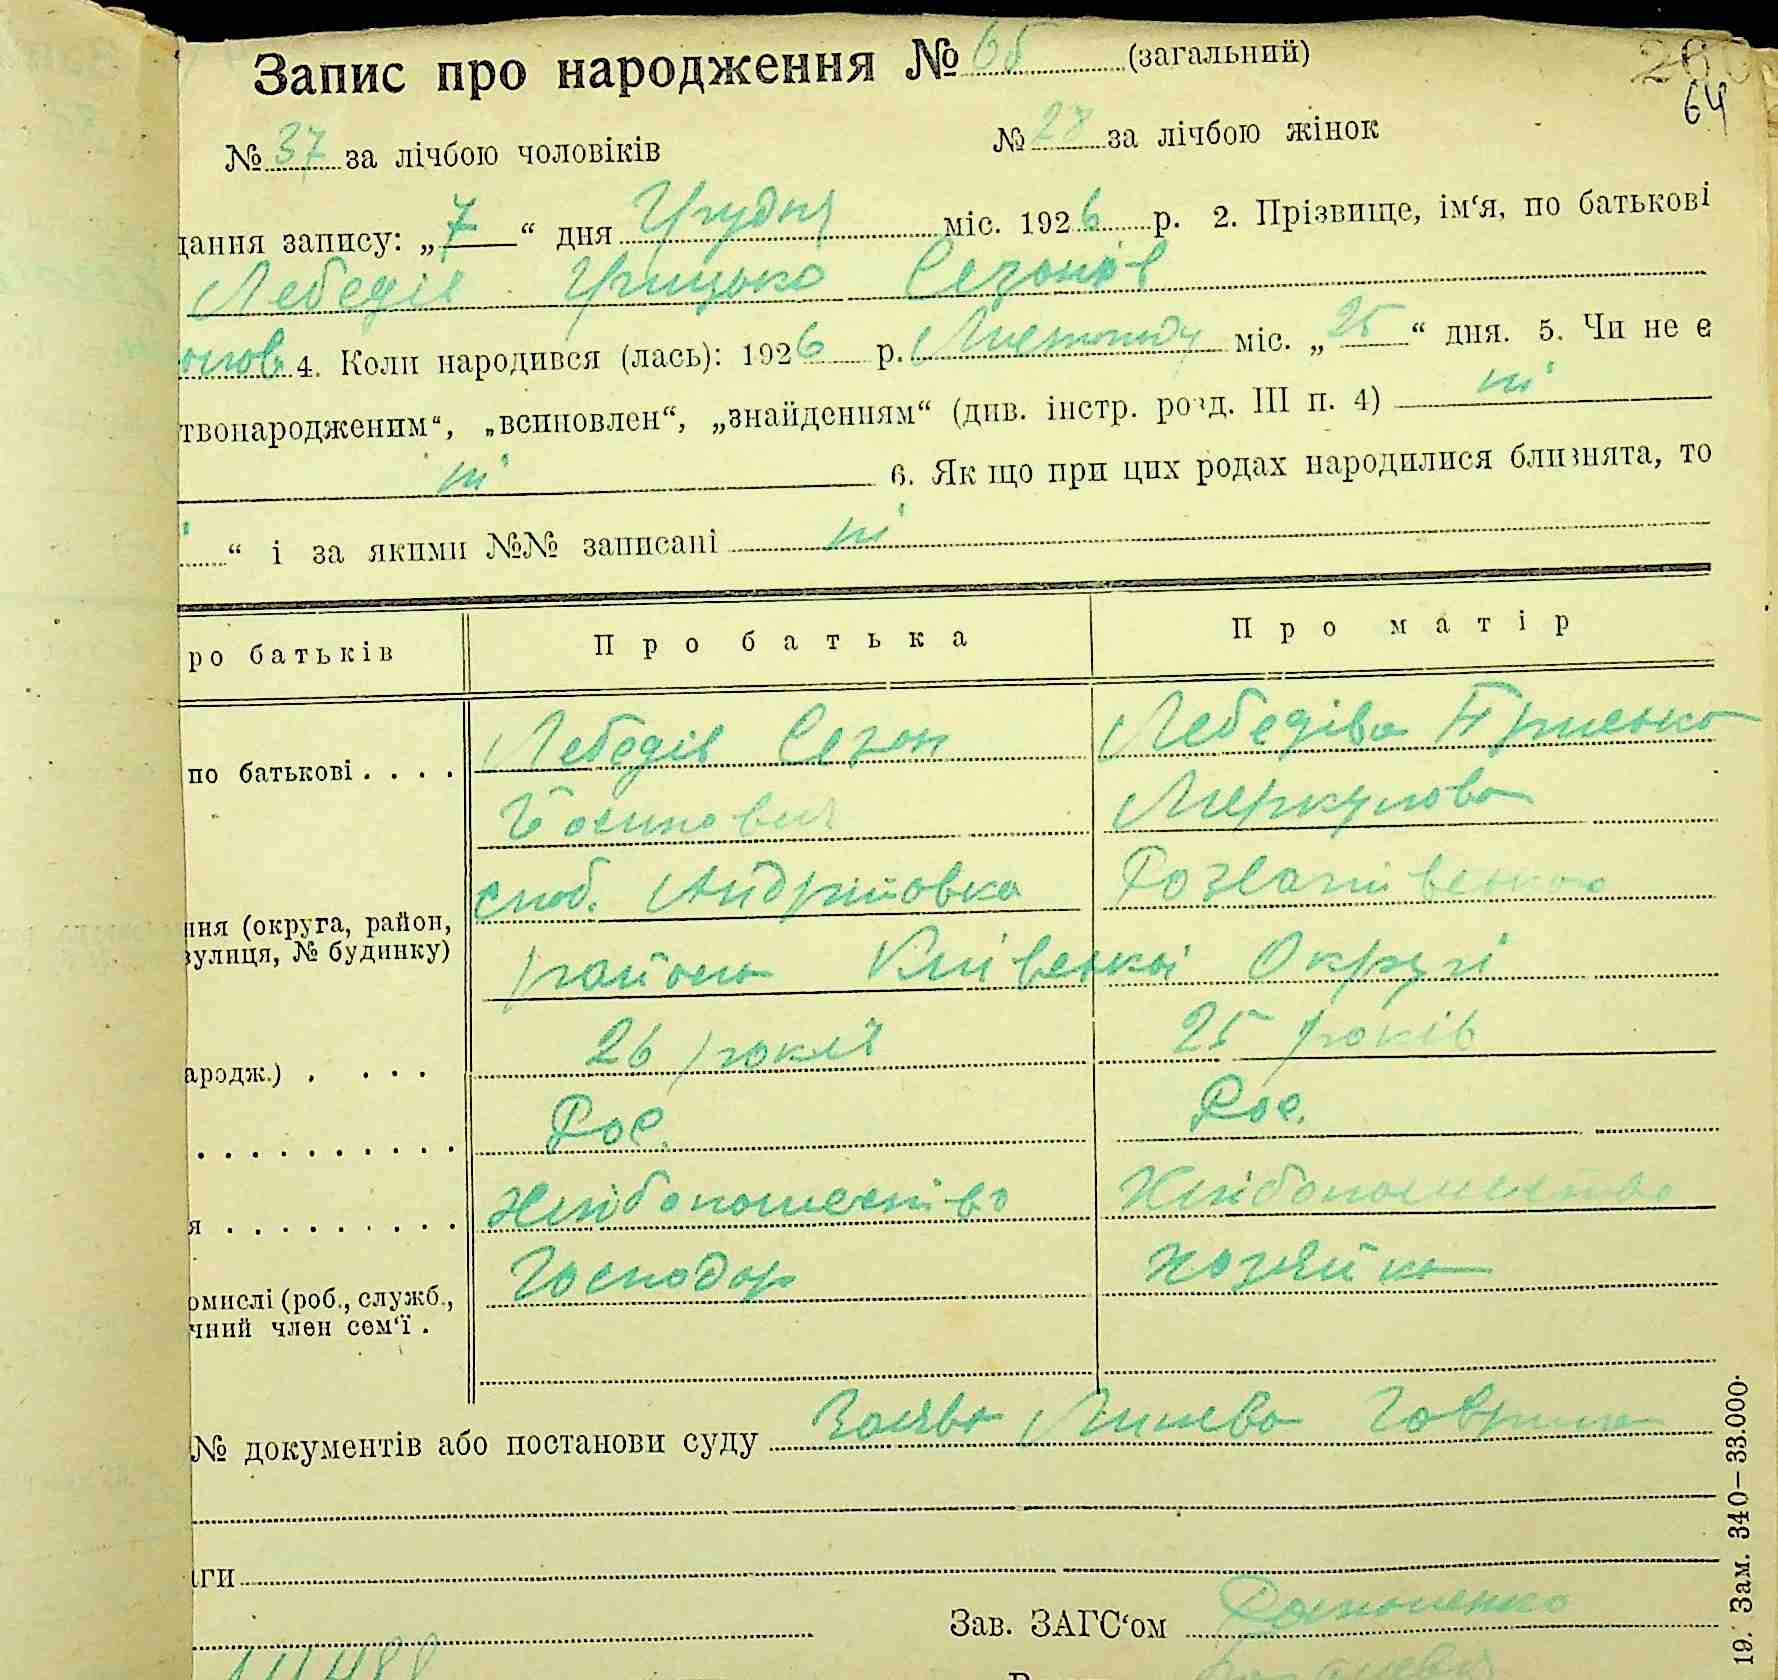 Запис про народження № 65 (загальний)
260
64
№ 37 за лічбою чоловіків № 28 за лічбою жінок
дання запису: „7“ дня Грудня міс. 1926 р. 2. Прізвище, ім‘я, по батькові
Лебедів Грицько Сезонів
4. Коли народився (лась): 1926 р. Листопаду міс. „25“ дня. 5. Чи не є
твонародженим“, „всиновлен“, „знайденням“ (див. інстр. розд. III п. 4) ні
ні 6. Як що при цих родах народилися близнята, то
“ і за якими №№ записані ні
ро батьків Про батька Про матір
по батькові . . . . Лебедів Сезон Лебедіва Приська
Йосипович Меркулова
слоб. Андріївка Розважівського
ння (округа, район,
вулиця, № будинку)
району Київської Округи
ародж.) . . . . 26 років 25 років
Рос. Рос.
я . . . . . . . . . Хліборобство Хліборобство
Господар Хозяйка
омислі (роб., служб.,
чний член сем‘ї .
№ документів або постанови суду Заява
аги
Зав. ЗАГС‘ом
19. Зам. 340—33.000.